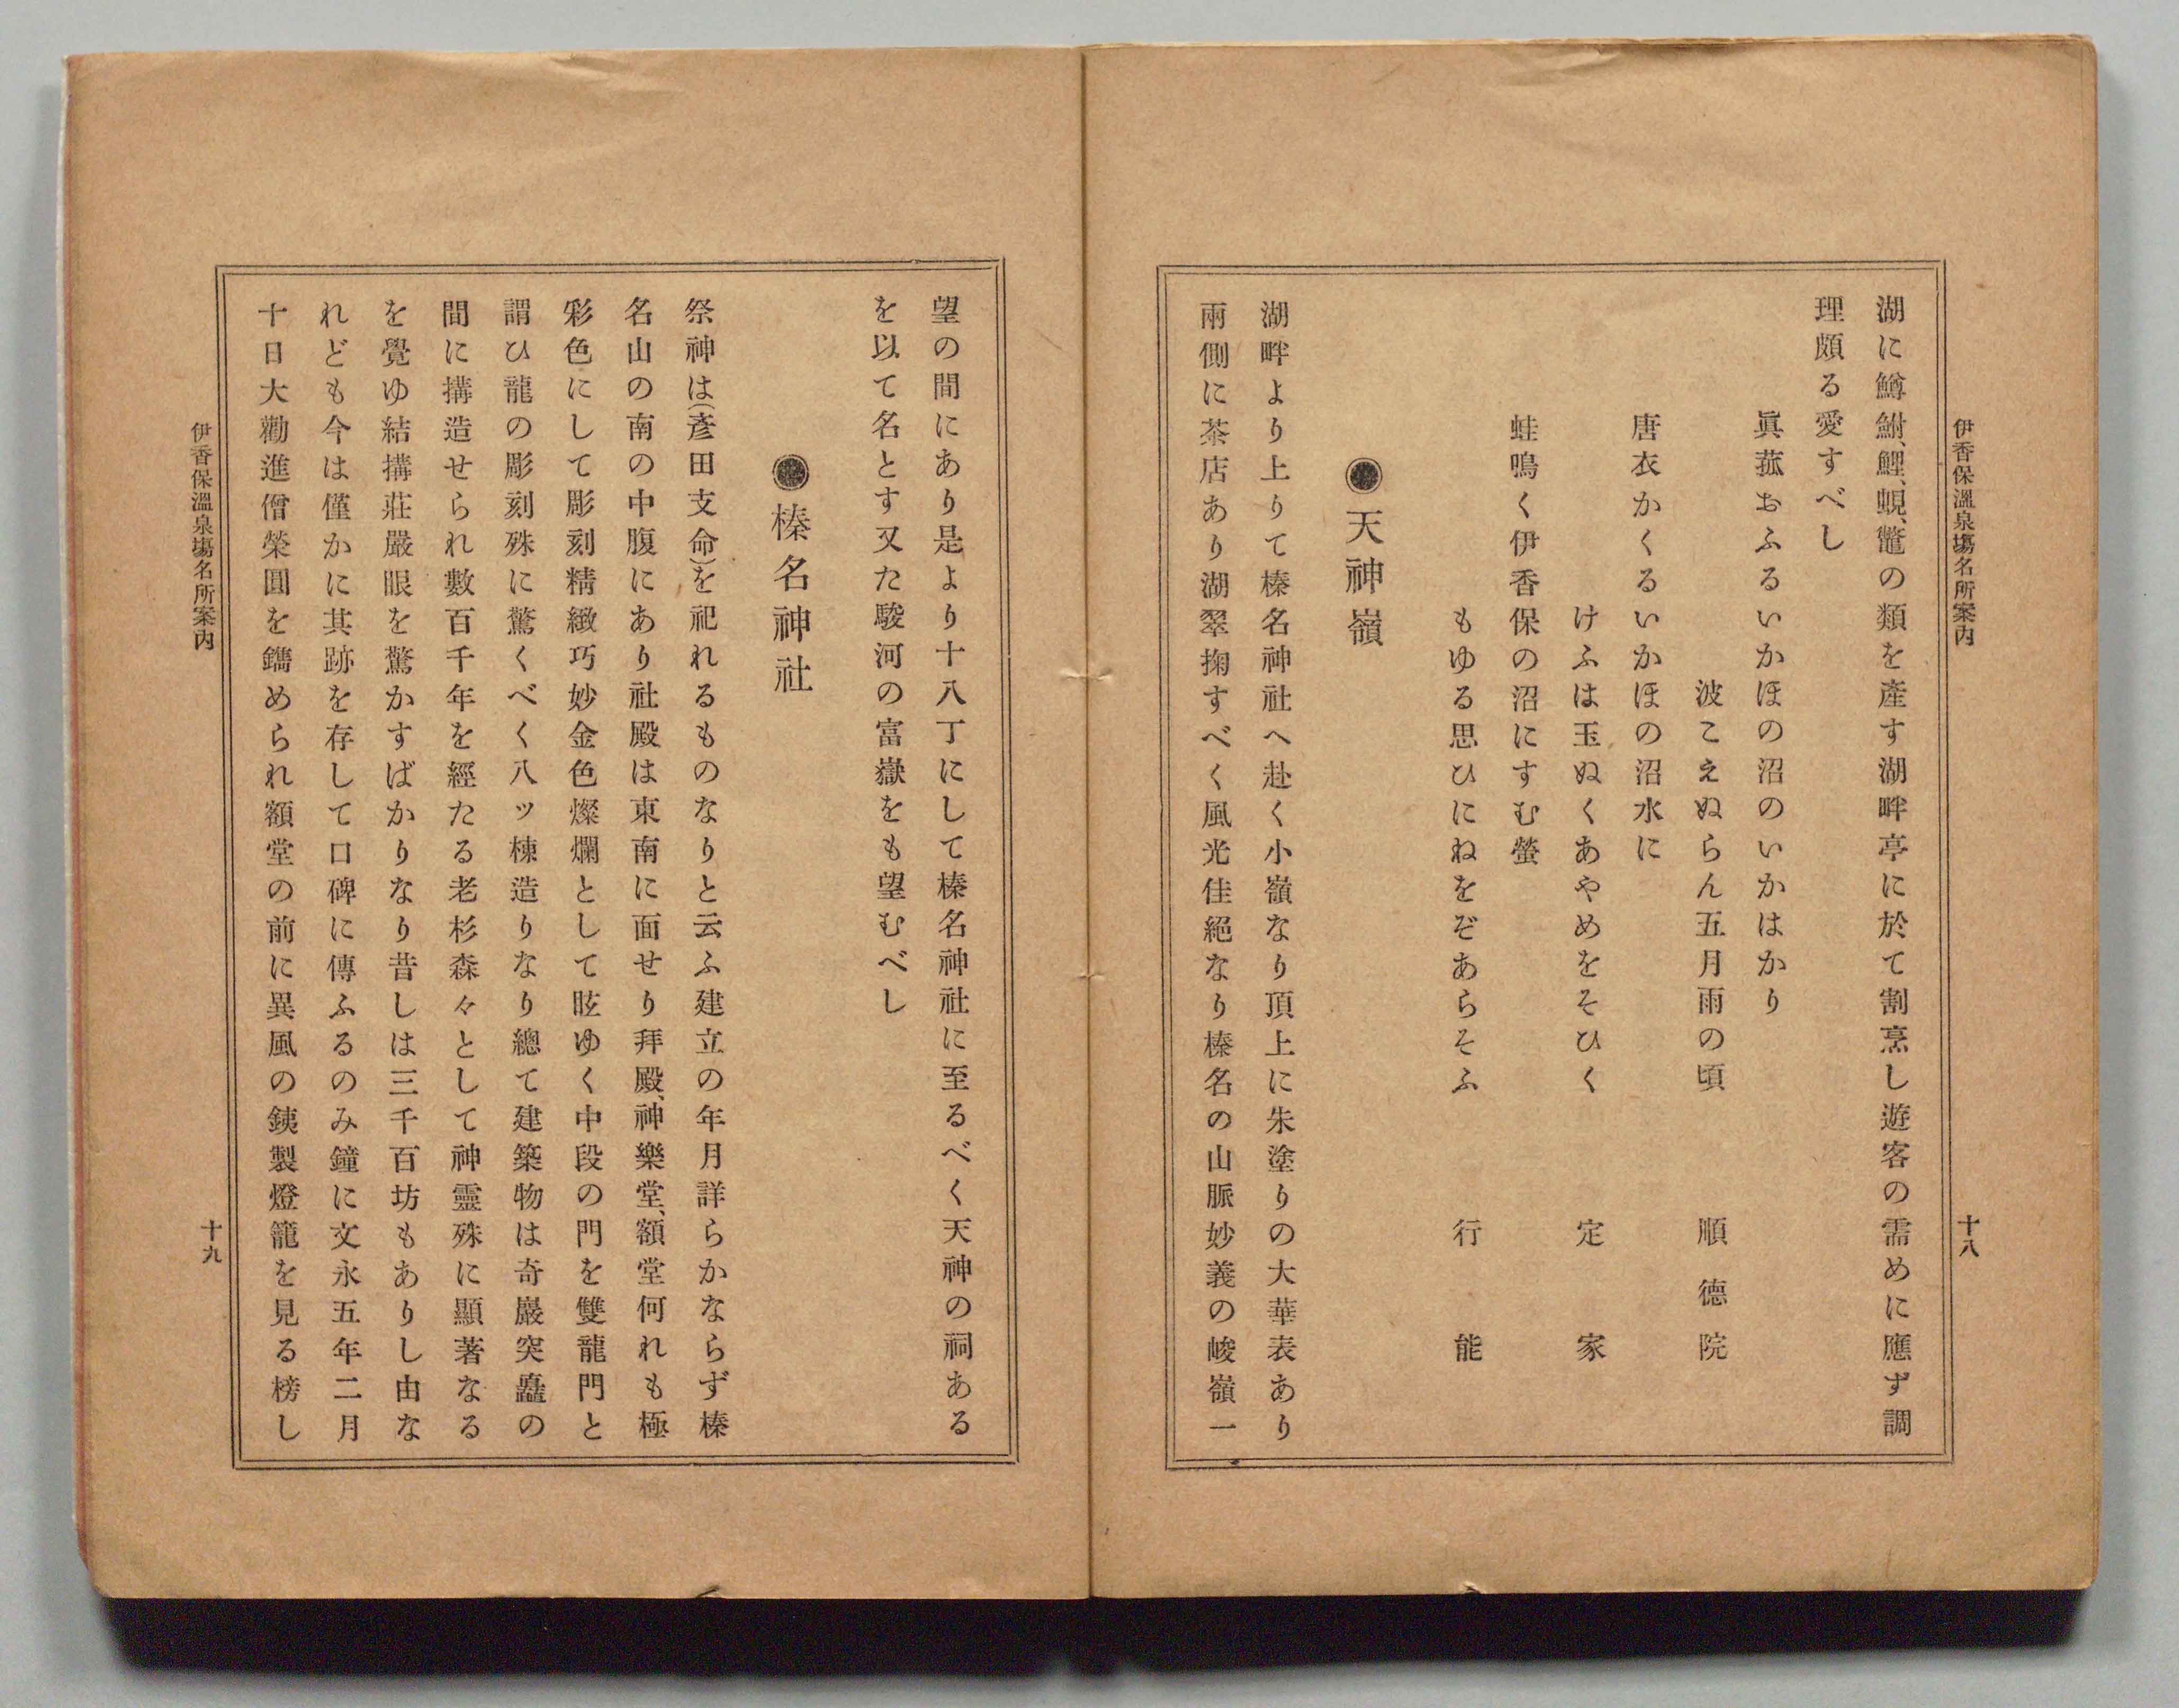 伊香保溫泉塲名所案內
十八
湖に鱒、鮒、鯉、蜆、鼈の類を產す湖畔亭に於て割烹し遊客の需めに應ず調
理頗る愛すべし
眞菰おふるいかほの沼のいかはかり
波こえぬらん五月雨の頃　順德院
唐衣かくるいかほの沼水に
けふは玉ぬくあやめをそひく　定家
蛙鳴く伊香保の沼にすむ螢
もゆる思ひにねをぞあらそふ　行能
●天神嶺
湖畔より上りて榛名神社へ赴く小嶺なり頂上に朱塗りの大華表あり
兩側に茶店あり湖翠掬すべく風光佳絕なり榛名の山脈妙義の峻嶺一
望の間にあり是より十八丁にして榛名神社に至るべく天神の祠ある
を以て名とす又た駿河の富嶽をも望むべし
●榛名神社
祭神は(彥田支命)を祀れるものなりと云ふ建立の年月詳らかならず榛
名山の南の中腹にあり社殿は東南に面せり拜殿、神樂堂、額堂何れも極
彩色にして彫刻精緻巧妙金色燦爛として眩ゆく中段の門を雙龍門と
謂ひ龍の彫刻殊に驚くべく八ッ棟造りなり總て建築物は奇巖突矗の
間に搆造せられ數百千年を經たる老杉森々として神靈殊に顯著なる
を覺ゆ結搆莊嚴眼を驚かすばかりなり昔しは三千百坊もありし由な
れども今は僅かに其跡を存して口碑に傳ふるのみ鐘に文永五年二月
十日大勸進僧榮圓を鐫められ額堂の前に異風の銕製燈籠を見る榜し
伊香保溫泉塲名所案內
十九